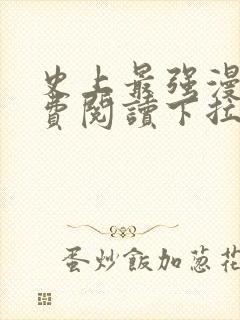 史上最强漫
費閱讀下拉
蛋炒飯加葱花